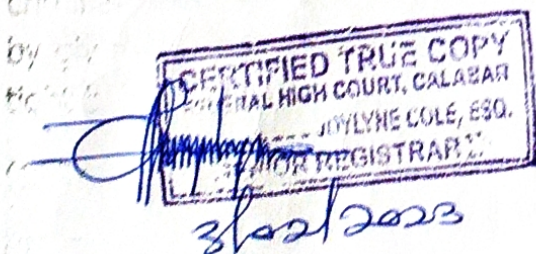 by
CERTIFIED TRUE COPY
HIGH COURT, CALABAR
JOYLYNE COLE, ESQ.
REGISTRAR
3/02/2023